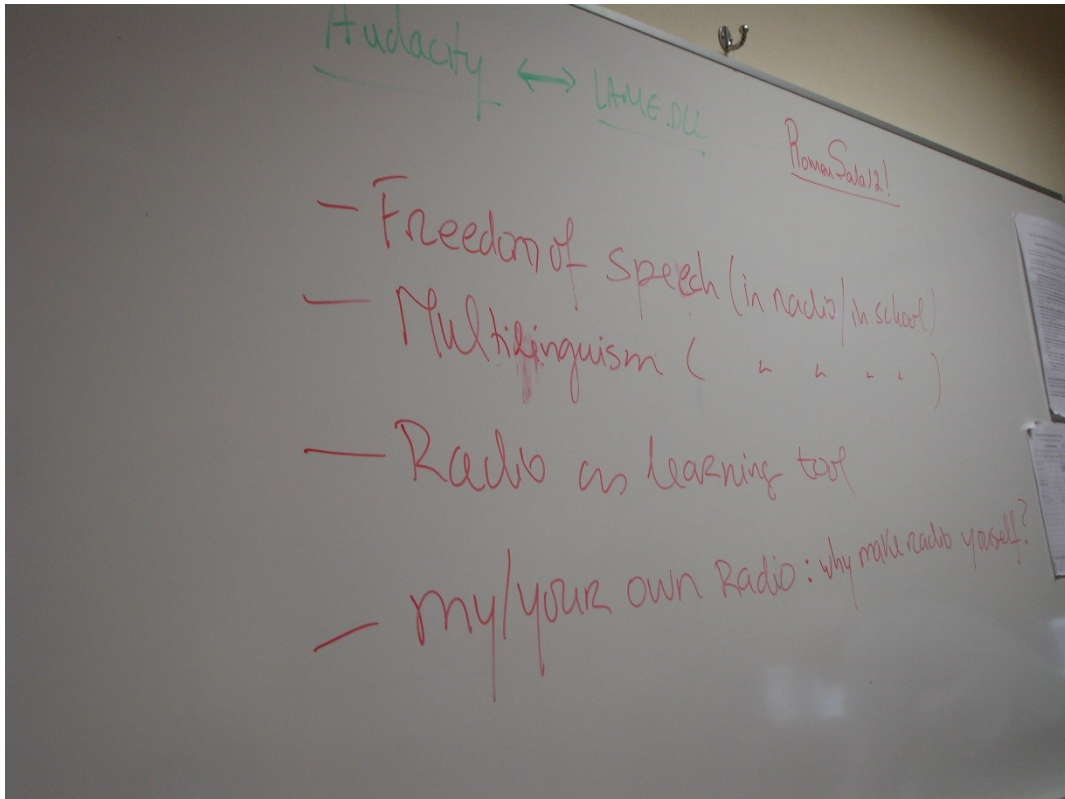 Audacity ↔ LAME.DLL
Roman Salad2!
- Freedom of speech (in radio/in school)
- Multilinguism ( " " " " )
- Radio as learning tool
- my/your own Radio: why make radio yourself?